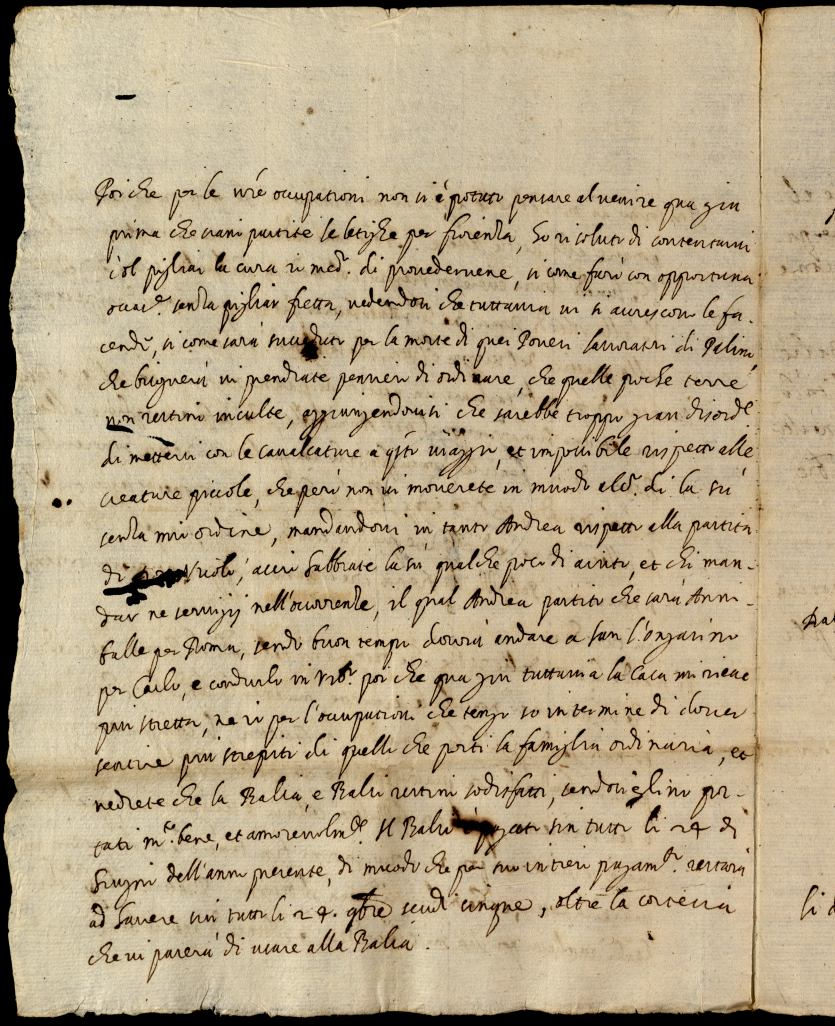 Poi che per le vre occupationi non si è potuto pensare al venire qua giù
prima che siano partite le letighe per fiorenza, so risoluto di contentarvi
col pigliar la cura di provedervene, si come farò con opportuna
senza pigliar fretta, vedendosi che tuttavia vi si accrescono le fa-
cende, si come sarà succeduto per la morte di quei Poveri lavoratori di
che bisognerà vi prendiate pensieri di ordinare, che quelle poche terre
non restino inculte, aggiungendovisi che sarebbe troppo gran disord.e
di mettervi con le cavalcature a qsto viaggio, et impossibile rispetto alle
creature piccole, che però non vi moverete in modo alc.o di la sù
senza mio ordine, mandandovi in tanto Andrea rispetto alla partita
di acciò habbiate la sù qualche poco di aiuto, et chi man-
dar ne servizij nell'occorrenze, il qual Andrea partito che sarà Anni-
balle per Roma, sendo buon tempo dovrà andare a san
per Carlo, e condurlo in poi che qua giù tuttavia la Casa mi riesce
più stretta, ne io per l'occupationi che tengo so in termine di dover
sentire più strepiti di quelli che porti la famiglia ordinaria, et
vedrete che la Balia, e Balio restino sodisfatti, sendosi eglino por-
tati m.to bene, et amorevolm.te Il Balio è pagato sin tutto li 24 di
Giugno dell'anno presente, di modo che per suo intiero pagam.to restarà
ad havere sin tutto li 24. 9bre scudi cinque, oltre la cortesia
che vi parerà di usare alla Balia.